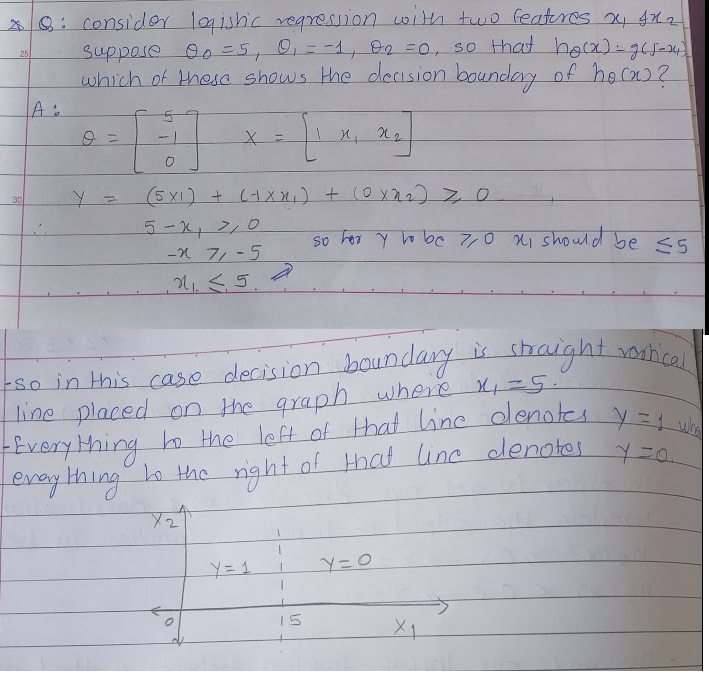 * Q: consider logistic regression with two features x₁ & x₂
25 suppose θ₀ = 5, θ₁ = -1, θ₂ = 0, so that hθ(x) = g(5-x₁)
which of these shows the decision boundary of hθ(x)?
A:
θ = [5 -1 0] X = [1 x₁ x₂]
30 Y = (5×1) + (-1×x₁) + (0×x₂) ⩾ 0
∴ 5 - x₁ ⩾ 0
-x ⩾ -5 so for Y to be ⩾ 0 x₁ should be ≤ 5
x₁ ≤ 5
-so in this case decision boundary is straight vertical
line placed on the graph where x₁ = 5.
-Everything to the left of that line denotes Y = 1
everything to the right of that line denotes Y = 0.
X₂
Y = 1 Y = 0
0 5 X₁